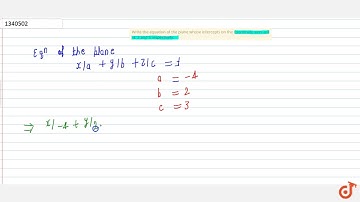 1340502
Write the equation of the plane whose intercepts on the
Eqⁿ of the plane
x/a + y/b + z/c = 1
a = -4
b = 2
c = 3
⇒ x/-4 + y/2